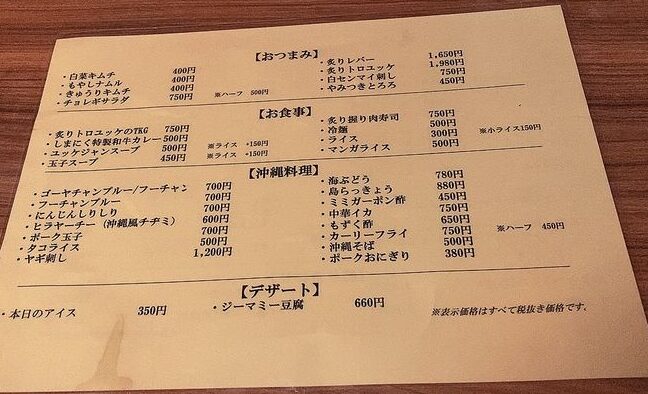 【おつまみ】
・白菜キムチ 400円
・もやしナムル 400円
・きゅうりキムチ 400円
・チョレギサラダ 750円 ※ハーフ 500円
・炙りレバー 1,650円
・炙りトロユッケ 1,980円
・白センマイ刺し 750円
・やみつきとろろ 450円
【お食事】
・炙りトロユッケのTKG 750円
・しまにく特製和牛カレー 500円 ※ライス +150円
・ユッケジャンスープ 500円 ※ライス +150円
・玉子スープ 450円
・炙り握り肉寿司 750円
・冷麺 500円
・ライス 300円 ※小ライス150円
・マンガライス 500円
【沖縄料理】
・ゴーヤチャンブルー/フーチャン 700円
・フーチャンブルー 700円
・にんじんしりしり 700円
・ヒラヤーチー（沖縄風チヂミ） 600円
・ポーク玉子 700円
・タコライス 500円
・ヤギ刺し 1,200円
・海ぶどう 780円
・島らっきょう 880円
・ミミガーポン酢 450円
・中華イカ 750円
・もずく酢 650円
・カーリーフライ 750円 ※ハーフ 450円
・沖縄そば 500円
・ポークおにぎり 380円
【デザート】
・本日のアイス 350円
・ジーマミー豆腐 660円
※表示価格はすべて税抜き価格です。